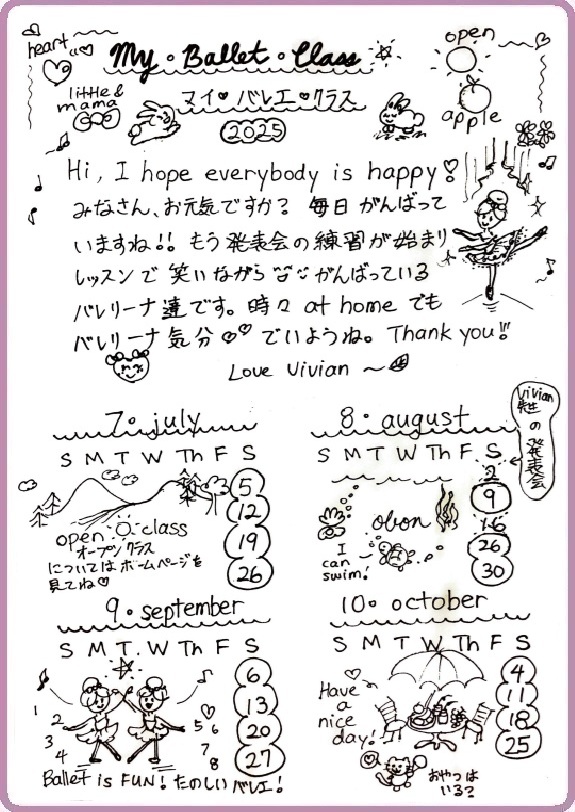 heart
My・Ballet・Class
open
little &
mama
マイ♡バレエ♡クラス
apple
2025
Hi, I hope everybody is happy!
みなさん、お元気ですか? 毎日 がんばって
いますね!! もう 発表会の練習が始まり
レッスンで 笑いながら がんばっている
バレリーナ達です。時々 at home でも
バレリーナ気分♡♡でいようね。Thank you!!
Love Vivian ~
7・july
S M T W Th F S
5
12
19
26
open class
オープン クラス
については ホームページを
見てね♡
8・august
Vivian
先生の発表会
S M T W Th F S
2
9
16
26
30
obon
I
can
swim!
9・september
S M T W Th F S
6
13
20
27
1
2
3
4
5
6
7
8
Ballet is FUN! たのしいバレエ!
10・october
S M T W Th F S
4
11
18
25
Have
a
nice
day!
おやつは
いる?